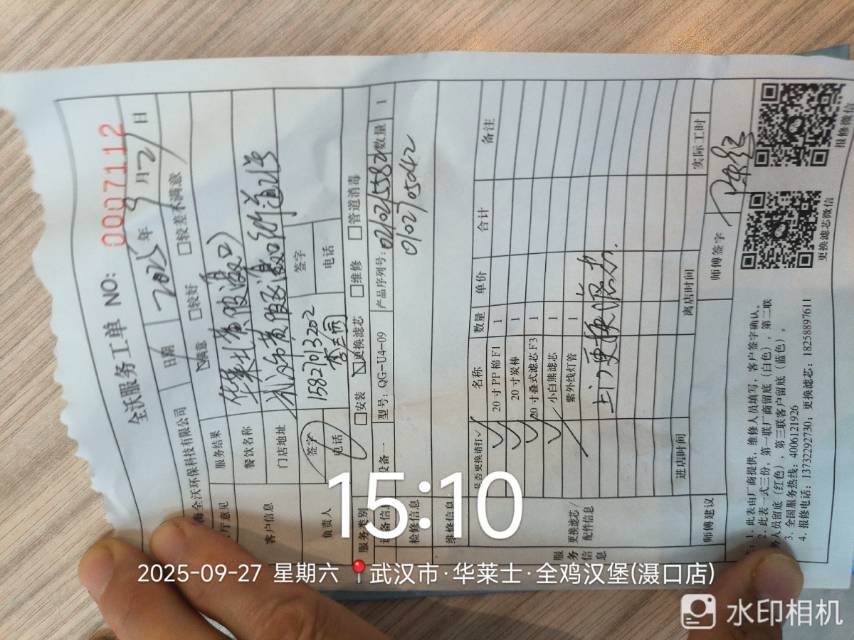 全沃服务工单 NO: 0007112
海全沃环保科技有限公司 日期 2025 年 9 月 27 日
客厅意见 服务结果 ☑满意 □较好 □较差不满意
客户信息 餐饮名称 华莱士黄陂(滠口)
门店地址
负责人 签字 15827013202 签字
电话 电话
服务类别 □安装 ☑更换滤芯 □维修 □管道消毒
设备信息 设备一 型号: QG-U4-09 产品序列号: 数量 1
检修信息
维修信息
服务信息 更换滤芯/配件信息 是否更换请打✓ 名称 数量 单价 合计 备注
✓ 20 寸 PP 棉 F1 1
✓ 20 寸炭棒 1
✓ 20 寸叠式滤芯 F3 1
小白熊滤芯 1
紫外线灯管 1
上门更换滤芯.
进店时间 离店时间 实际工时
师傅建议 师傅签字
1. 此表由厂商提供, 维修人员填写, 客户签字确认。
2. 此表一式三份, 第一联厂商留底(白色), 第二联
人员留底(红色), 第三联客户留底(蓝色)。
3. 全国服务热线: 4006121926
4. 报修电话: 13732292730; 更换滤芯: 18258897611
更换滤芯微信
报修微信
15:10
2025-09-27 星期六 武汉市·华莱士·全鸡汉堡(滠口店)
水印相机